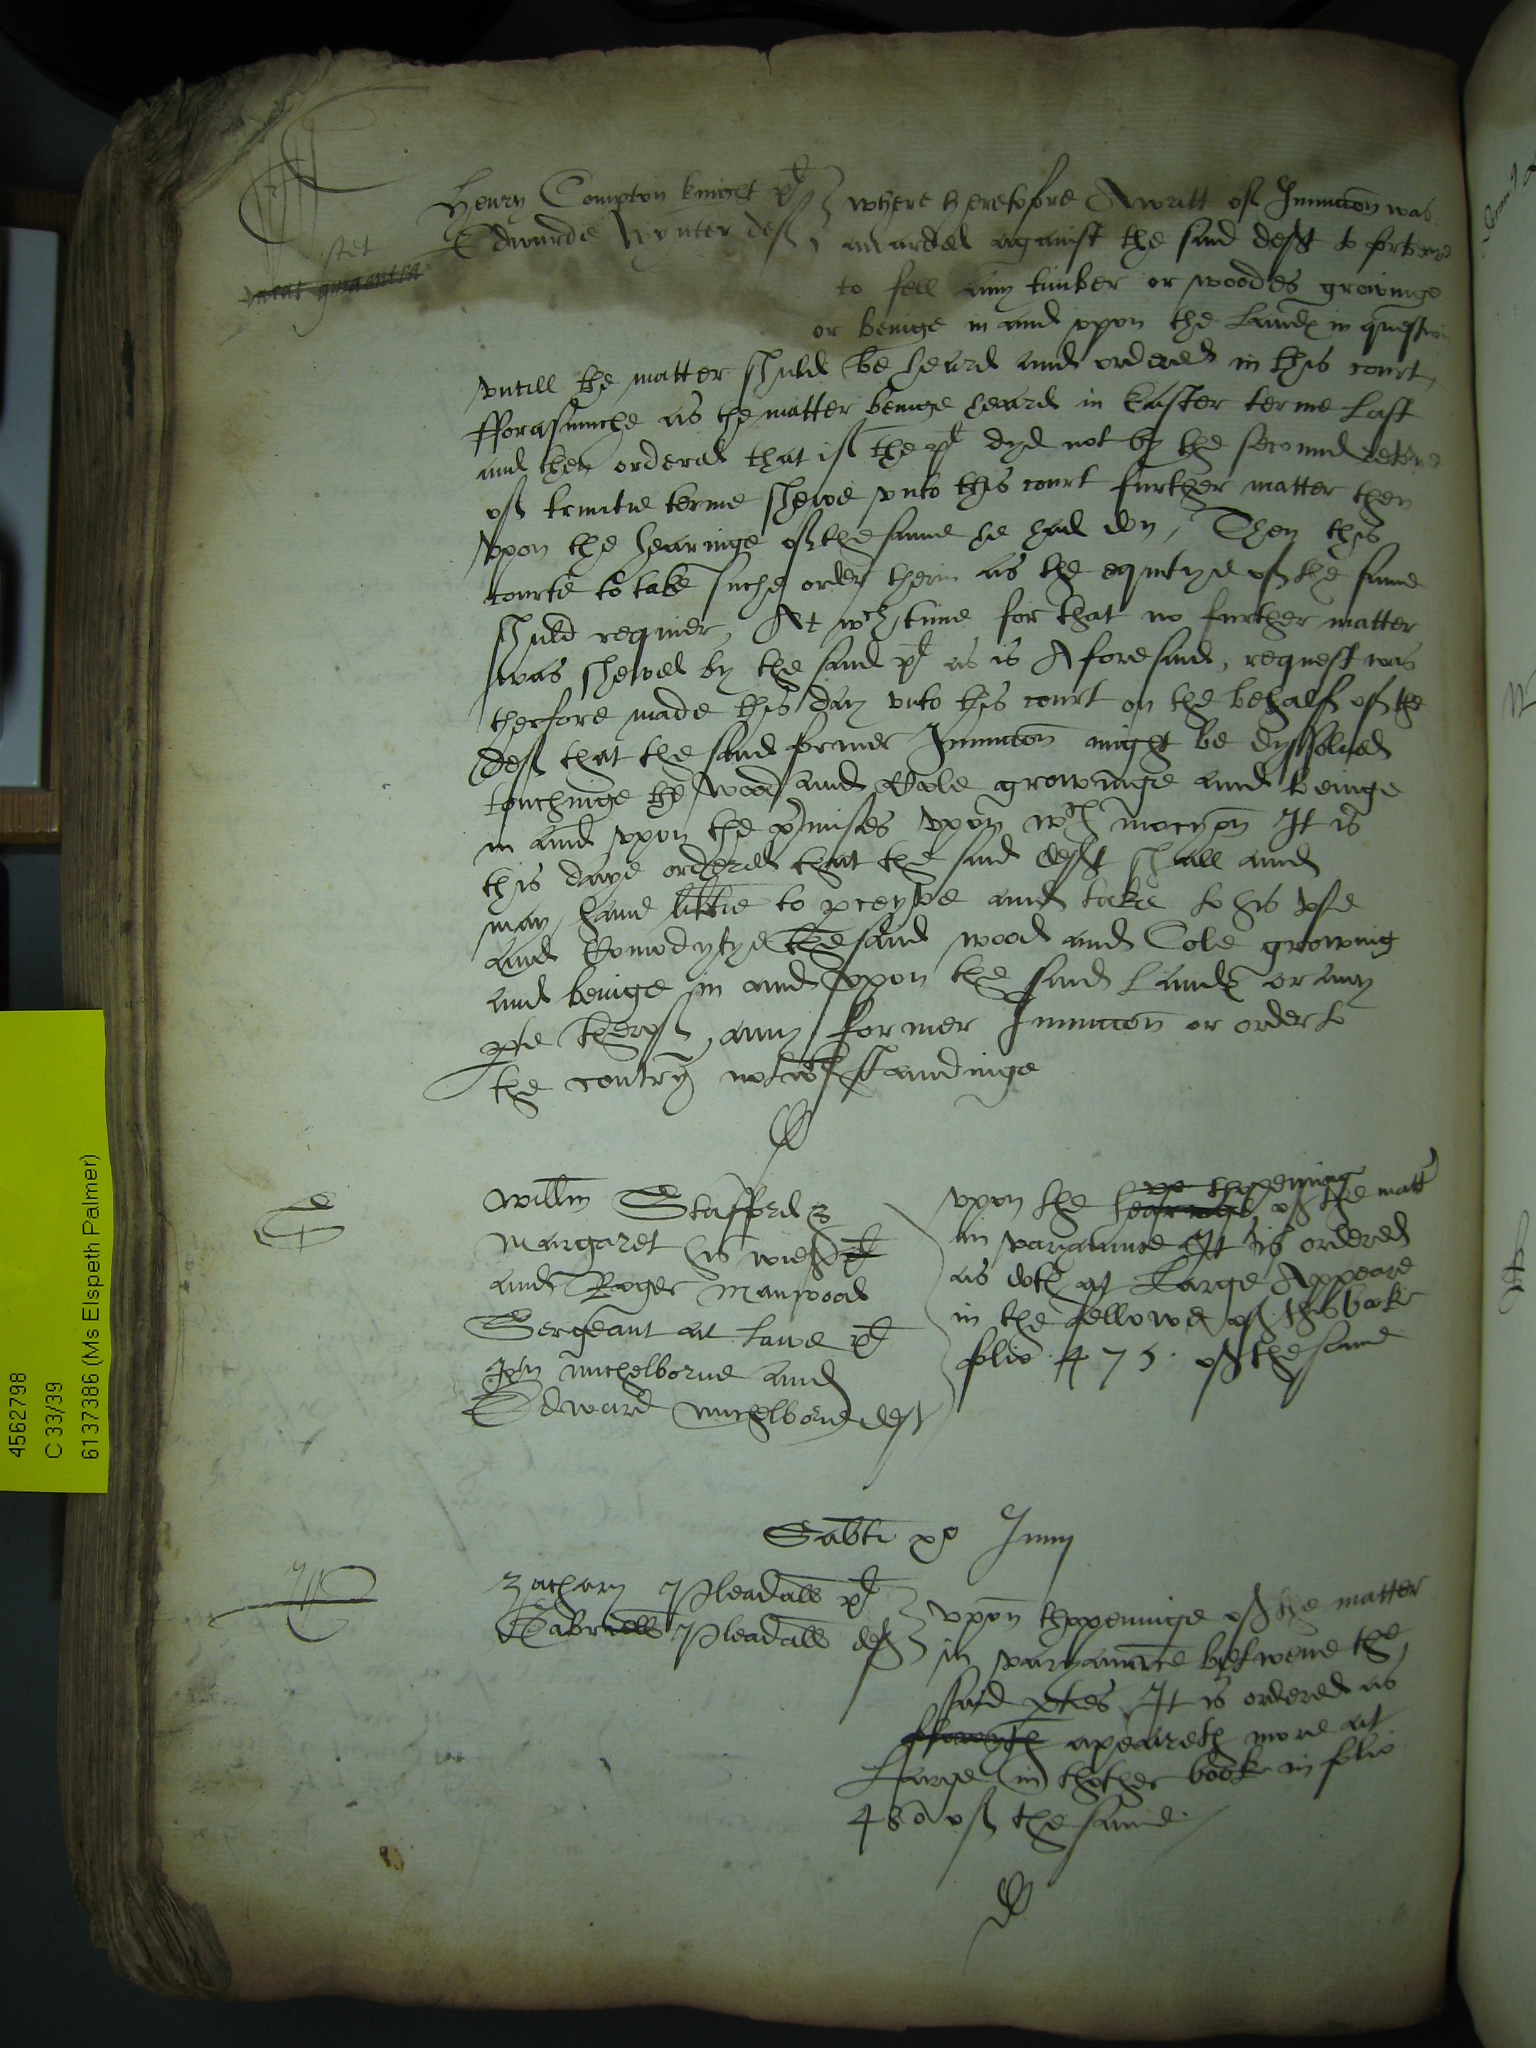 Henry Compton knight pl
Edwarde Wynter def
stet
where heretofore A writt of Iniunccon was
awarded against the said deft to
to fell any timber or woodes growinge
or beinge in and vpon the Landes in question
vntill the matter shuld be heard and ordered in this court,
fforasmuche as the matter beinge heard in Easter terme Last
and then ordered that if the pl dyd not by the second retorne
of trinitie terme shewe vnto this court further matter then
vpon the hearinge of the same he had don, Then this
courte to take suche order therin as the equitye of the same
shuld requier, At wch time for that no further matter
was shewed by the said pl as is Aforesaid, request was
therfore made this day vnto this court on the behalf of the
def that the said former Iniunccon might be dyssolued
touchinge the wood and Cole growinge and beinge
in and vpon the pmises vpon wch mocyon It is
this daye ordered that the said deft shall and
may haue libtie to pceyve and take to his vse
and Comodytye the said wood and Cole growing
and beinge in and vpon the said Landes or any
pte therof, any former Iniunccon or order to
the contry notwthstandinge
Willm Stafford &
Margaret his wief pl
and Roger Manwood
Sergeant at Lawe pl
Ihn michelborne and
Edward michelborne def
vpon the hearinge thopening of the matt
in varyaunce It is ordered
as doth at Large Appeare
in the fellowe of this booke
folio 475. of the same
Sabti xo Junij
Zachary Pleadall pl
Gabriell Pleadall def
vpon thopeninge of the matter
in varyaunce betwene the
said pties It is ordered as
apeareth more at
Large in thother booke in folio
480 of the same
4562798
C 33/39
6137386 (Ms Elspeth Palmer)